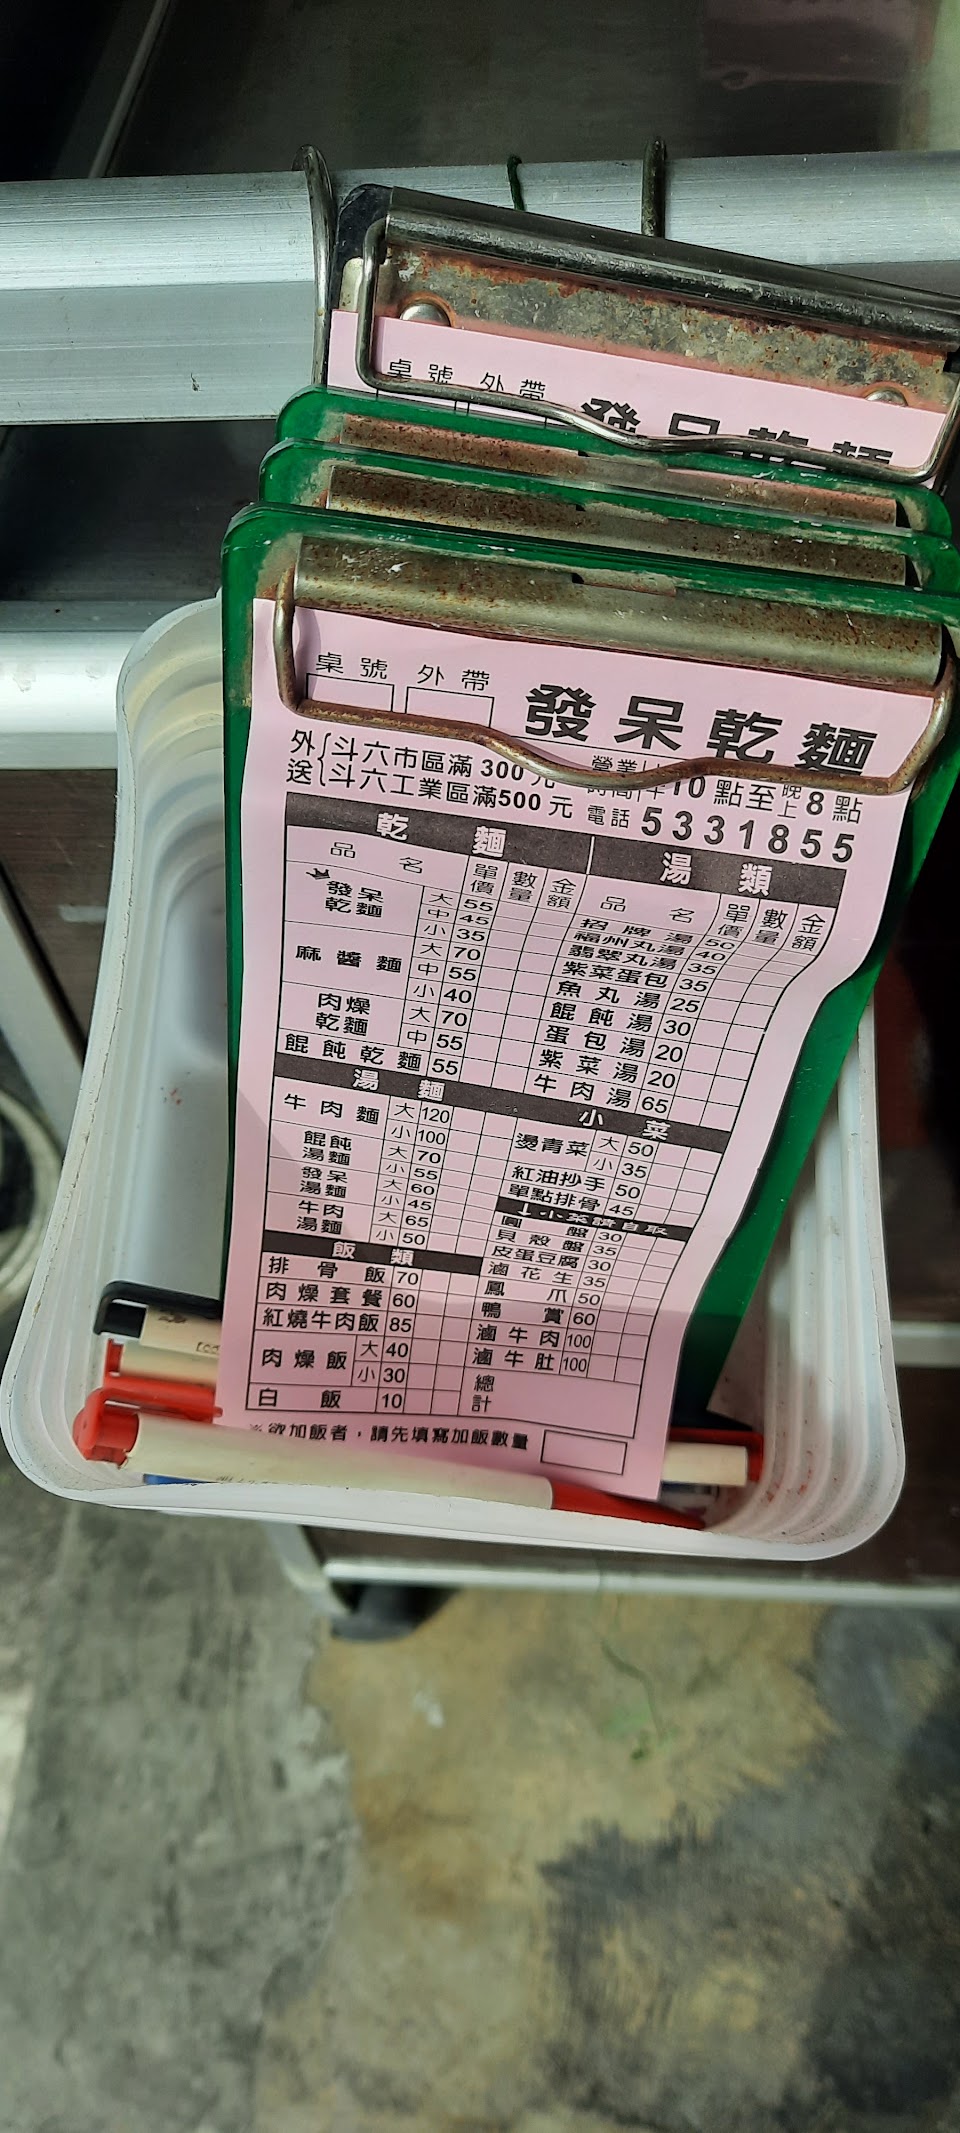 桌號 外帶
桌號 外帶 發呆乾麵
外送 斗六市區滿 300 元
斗六工業區滿500 元
10 點至晚上8點
電話 5331855
乾麵
品名 單價 數量 金額
發呆乾麵 大 55
中 45
小 35
麻醬麵 大 70
中 55
小 40
肉燥乾麵 大 70
中 55
餛飩乾麵 55
湯麵
牛肉麵 大 120
小 100
餛飩湯麵 大 70
小 55
發呆湯麵 大 60
小 45
牛肉湯麵 大 65
小 50
飯類
排骨飯 70
肉燥套餐 60
紅燒牛肉飯 85
肉燥飯 大 40
小 30
白飯 10
湯類
品名 單價 數量 金額
招牌湯 50
福州丸湯 40
翡翠丸湯 35
紫菜蛋包 35
魚丸湯 25
餛飩湯 30
蛋包湯 20
紫菜湯 20
牛肉湯 65
小菜
燙青菜 大 50
小 35
紅油抄手 50
單點排骨 45
↓小菜請自取
圓盤 30
貝殼盤 35
皮蛋豆腐 30
滷花生 35
鳳爪 50
鴨賞 60
滷牛肉 100
滷牛肚 100
總計
※欲加飯者，請先填寫加飯數量